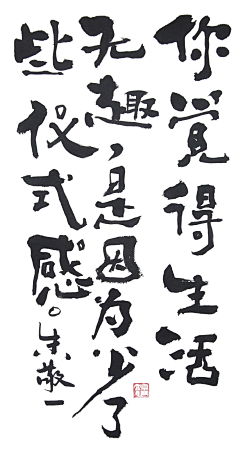 你覺得生活
无趣,是因为少了
些仪式感。朱敬一